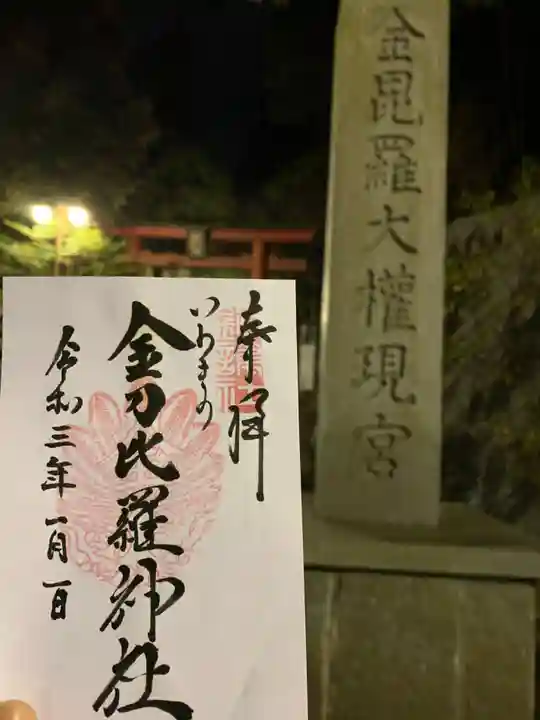 金毘羅大權現宮
奉拝
いわきの
金刀比羅神社
令和三年一月一日